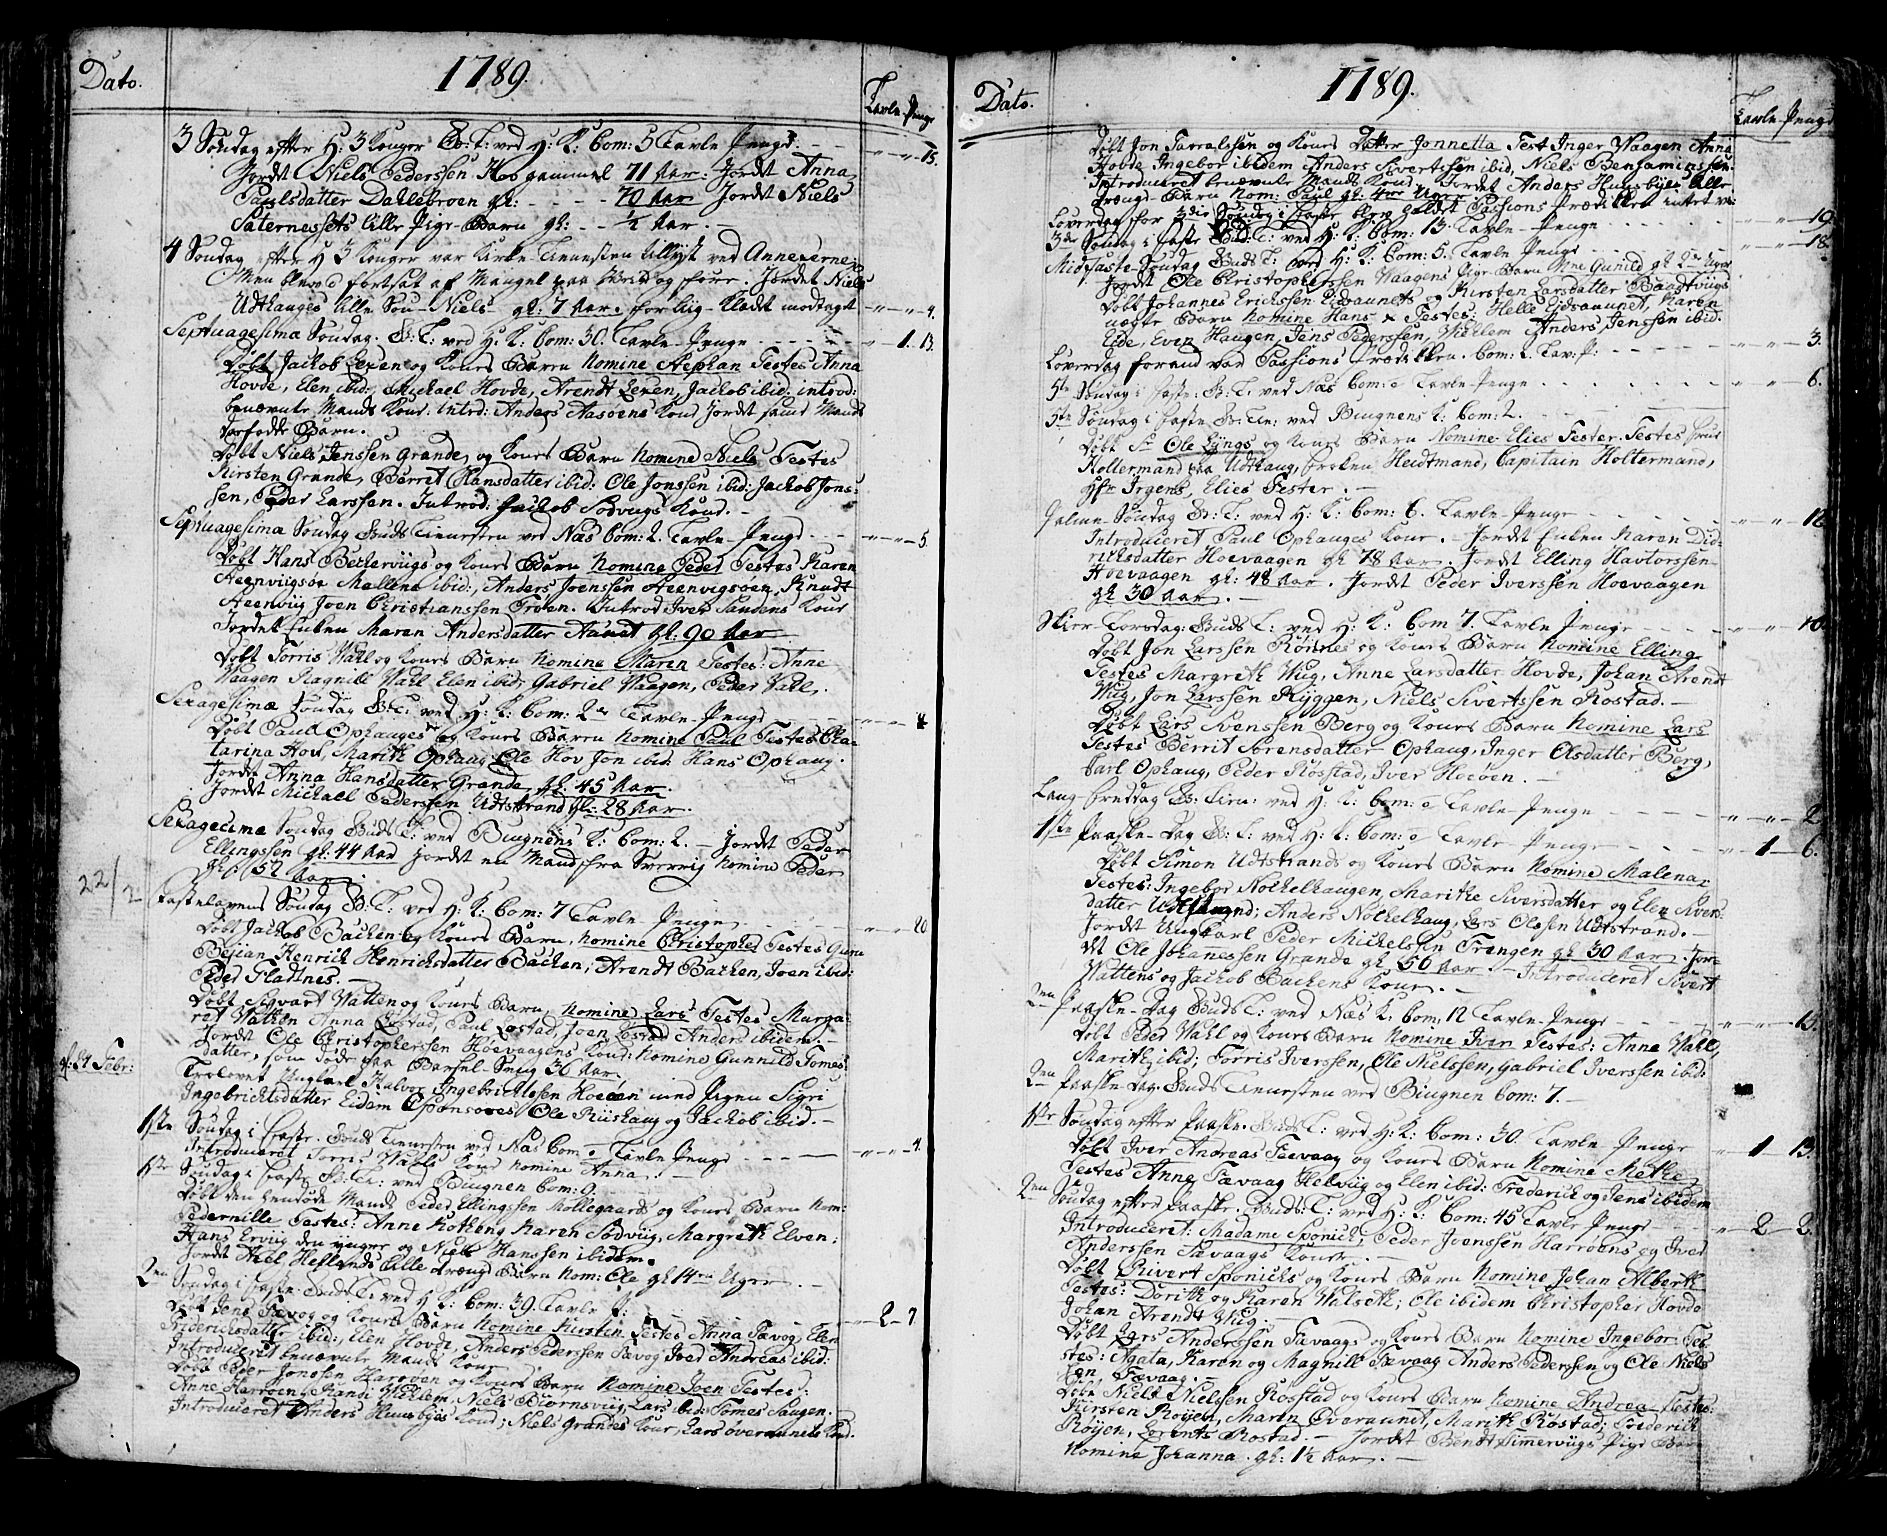 Dato.
1789.
Tavle-Penge
3 Søndag efter H: 3 Konger B: T: ved H: K: Com: 5 Tavle-Penge. " " 15.
Jordet Niels Pederssen Hos gammel 71 Aar. Jordet Anna
Paulsdatter Dallebroen gl: - - - - 70 Aar Jordet Niels
Saternessets lille Pige-Barn gl: - - ½ Aar. -
4 Søndag efter H 3 Konger var Kirke-Tienesten ved Annexerne
Men blev fortsat af Mangel paa Jordet Niels
Udthauges lille Søn-Niels- gl: 7 Aar. for Liig- modtaget " " 4.
Septuagesima Søndag. B: T: ved H: K: Com: 30. Tavle-Penge " 1 13.
Døbt Jackob Lexen og Kones Barn Nomine Stephan Testes Anna
Hovde, Elen ibid: Michael Hovde, Arendt Lexen, Jackob ibid: introd:
benævnte Mands Kone. introd: Anders Aasøens Kone Jordet samme Mands
Barn.
Døbt Niels Jenssen Grande, og Kones Barn Nomine Niels Testes
Kirsten Grande, Berret Hansdatter ibid: Ole Jonssen ibid: Jackob Jons:
sen, Peder Larssen. Introd: Jackob Sodvigs Kone. -
Septuagesima Søndag Buds Tienesten ved Næs Com: 2. Tavle-Penge " " 5
Døbt Hans Beckervigs og Kones Barn Nomine Peder Testes Karen
Steenvigsøe Mallene ibid:, Anders Joenssen Steenvigsøen, Knudt
Steenviig Joen Christianssen Troen. Introd Iver Sandens Kone
Jordet Enken Maren Andersdatter Aunet gl: 90 Aar
Døbt Torris Wahl og Kones Barn Nomine Maren Testes: Anne
Waagen Ragnild Wahl Elen ibid; Gabriel Waagen, Peder Vahl.
Sexagesimæ Søndag B: T: ved H: K: Com: Tavle-Penge
Døbt Paul Ophauges og Kones Barn Nomine Paul Testes Cha:
tarina Hov, Marith Ophaug Ole Hov Jon ibid: Hans Ophaug.
Jordet Anna Hansdatter Grande gl: 45 Aar.
Jordet Michael Pederssen Udtstrand gl: 28 Aar.
Sexagesima Søndag Buds T: ved Biugnens K: Com: 2. - Jordet Peder
Ellingssen gl: 44 Aar Jordet en Mand fra Sverrig Nomine Peder
gl: 52 Aar.
22/2 Fastelavens Søndag B: T: ved H: K: Com: 7 Tavle-Penge " " 20.
Døbt Jackob Backen og Kones Barn, Nomine Christopher Testes
Henrich Henrichsdatter Backen, Arendt Backen, Joen ibid:
Peder Fladtnes. -
Døbt Sigvart Watten og Kones Barn Nomine Lars Testes Marga:
ret Watten Anna Løstad, Paul Løstad, Joen Løstad Anders ibidem. -
Jordet Ole Christopherssen Høevaagens Kone: Nomine Gunnild Tomes:
datter, som døde paa Barsel-Seng 36 Aar.
d: 24 Febr: Trolovet Ungkarl Halvor Ingebrichtsen Hoeøen med Pigen Sigri
Ingebrichsdatter Eidem Sponsores Ole Riishaug og Jackob ibid. -
1ste Søndag i Faste. Buds Tienesten ved Næs Com: Tavle-Penge " " 4.
Introduceret Torris Wahls Kone Nomine Anna. -
1ste Søndag i Faste B: Tl: ved Biugnen Com: 9.
Døbt den hendøde Mands Peder Ellingssen Mollegaards og Kones Barn Nom:
Pedernille Testes: Anne Kotteng Karen Sodviig, Margreth Elven;
Hans Erviig den yngre og Niels Hanssen ibidem.
Jordet Axel Heflands lille drenge Barn Nom: Ole gl 14en Uger. -
2en Søndag i Faste Buds T: ved H K: Com: 39. Tavle P: 2-7
Døbt Jens Tævog og Kones Barn Nomine Kirsten Testes Anna Tævog, Elen
Friderichsdatter ibid: Elen Hovde, Anders Pederssen Tævog Iver Andreas ibid:
Introduceret benævnte Mands Kone
Døbt Peder Jonssen Harøen og Kones Barn Nomine Joen Testes:
Anne Harrøen, Randi Wiklem, Niels Biørnsviig, Lars ibid: Tomes Saugen.
Introduceret Anders Huusbyes Kone, Niels Grandes Kone, Lars overaunets Kone.
Dato.
1789.
Tavle-Penge
Døbt Jon Tarralssen og Kones Datter Jonnetta Test Inger Waagen Anna
Hovde Ingebor ibidem Anders Sivertssen ibid, Niels Benjaminssen.
Introduceret benævnte Mands Kone. Jordet Anders Huusbyes lille
drenge-Barn Nom: Paul gl: 4re Uger
Løverdag for 3die Søndag i Faste blev holdet Passions Prædiken intet
3de Søndag i Faste Bud: T: ved H: K: Com: 13. Tavle-Penge " " 19.
Midfaste-Søndag Buds T: ved H: K: Com: 5. Tavle-Penge " " 18.
Jordet Ole Christopherssen Waagens Pige-Barn Gunild
Døbt Johannes Erichssen Eidsaunets og Kirsten Larsdatter Baadtviigs
uægte Barn Nomine Hans Testes: Helle Eidsaunet, Karen
Eide, Even Haugen, Jens Pederssen, Wiklem Anders Jenssen ibid.
Løverdag forend var Passions Prædikken. Com: 2. Tav: P: " " 3.
5te Søndag i Faste: B: T: ved Næs Com: Tavle-Penge " " 6.
5te Søndag i Faste B: Tie: ved Biugnens K: Com: 2.
Døbt Sr Ole Lyngs og Kones Barn Nomine Elies Fester. Testes Frue
Holtermand paa Udthaug, frøken Heidtmand, Capitain Holtermand,
Hr Irgens, Elies Fester. -
Palme-Søndag B: T: ved H: K: Com: 6. Tavle-Penge " " 12
Introduceret Paul Ophauges Kone. - Jordet Enken Karen Did:
richsdatter Hoevaagen gl 78 Aar. Jordet Elling Havtorssen
Hoevaagen gl: 48 Aar. Jordet Peder Iverssen Hoevaagen
gl 30 Aar. -
Skier-Torsdag: Buds T: ved H: K: Com 7. Tavle-Penge " " 10.
Døbt Jon Larssen Rønnes og Kones Barn Nomine Elling
Testes Margreth Wiig, Anne Larsdatter Hovde, Johan Arendt
Wiig, Jon Larssen Ryggen, Niels Sivertssen Rostad. -
Døbt Lars Svenssen Berg og Kones Barn Nomine Lars
Testes Berrit Sørensdatter Ophaug, Inger Olsdatter Berg,
Carl Ophaug, Peder Røstad, Iver Hoeøen. -
Lang-fredag B: Tien: ved H: K: Com: Tavle-Penge " " 2
1ste Paaske-Dag B: T: ved H: K: Com: Tavle-Penge " 1 6.
Døbt Simon Udtstrands og Kones Barn Nomine Malena
Testes: Ingebor Nockelhaugen, Marithe Siversdatter og Elen Sivers:
datter Udtstrand; Anders Nockelhaug, Lars Olssen Udtstrand. -
Jordet Ungkarl Peder Michelssen Trengen gl 30 Aar. Jor:
det Ole Johannessen Grande gl 50 Aar. - Introduceret Sivert
Wattens og Jackob Backens Kone. -
2en Paaske-Dag Buds T: ved Næs K: Com: 12 Tavle-Penge " " 15.
Døbt Peder Wahl og Kones Barn Nomine Iver Testes: Anne Wahl,
Marithe ibid; Torris Iverssen, Ole Nielssen, Gabriel Iverssen ibid:
2en Paaske-Dag. Buds Tienesten ved Biugnen Com: 7. -
1ste Søndag efter Paaske. Buds T: ved H: K: Com: 30. Tavle-Penge " 1 13.
Døbt Iver Andreas Tævaag og Kones Barn Nomine Methe
Testes Anne Tævaag Helviig og Elen ibid: Frederich og Jens ibidem
2en Søndag efter Paaske. Buds: T: ved H: K: Com: 45 Tavle-Penge " 2 2.
Introduceret: Madame Sponich, Peder Joenssen Harrøens og Iver
Anderssen Tævaags Koner. -
Døbt Sivert Sponichs og Kones Barn Nomine Johan Alberth
Testes: Dorith og Karen Walseth; Ole ibidem Christopher Hovde
Johan Arendt Wiig. -
Døbt Lars Anderssen Tævaags og Kones Barn Nomine Ingebor: Tes:
stes: Agata, Karen og Magnill Tævaag Anders Pederssen og Ole Niels
sen, Tævaag. -
Døbt Niels Nielssen Røstad og Kones Barn Nomine Andrea Testes:
Kirsten Røyen, Maren Overaunet, Marith Røstad; Frederich
Røyen, Lorents Rostad. - Jordet Bendt Simmerviigs Pige Barn
Nomine Johanna. gl: 1½ Aar. -